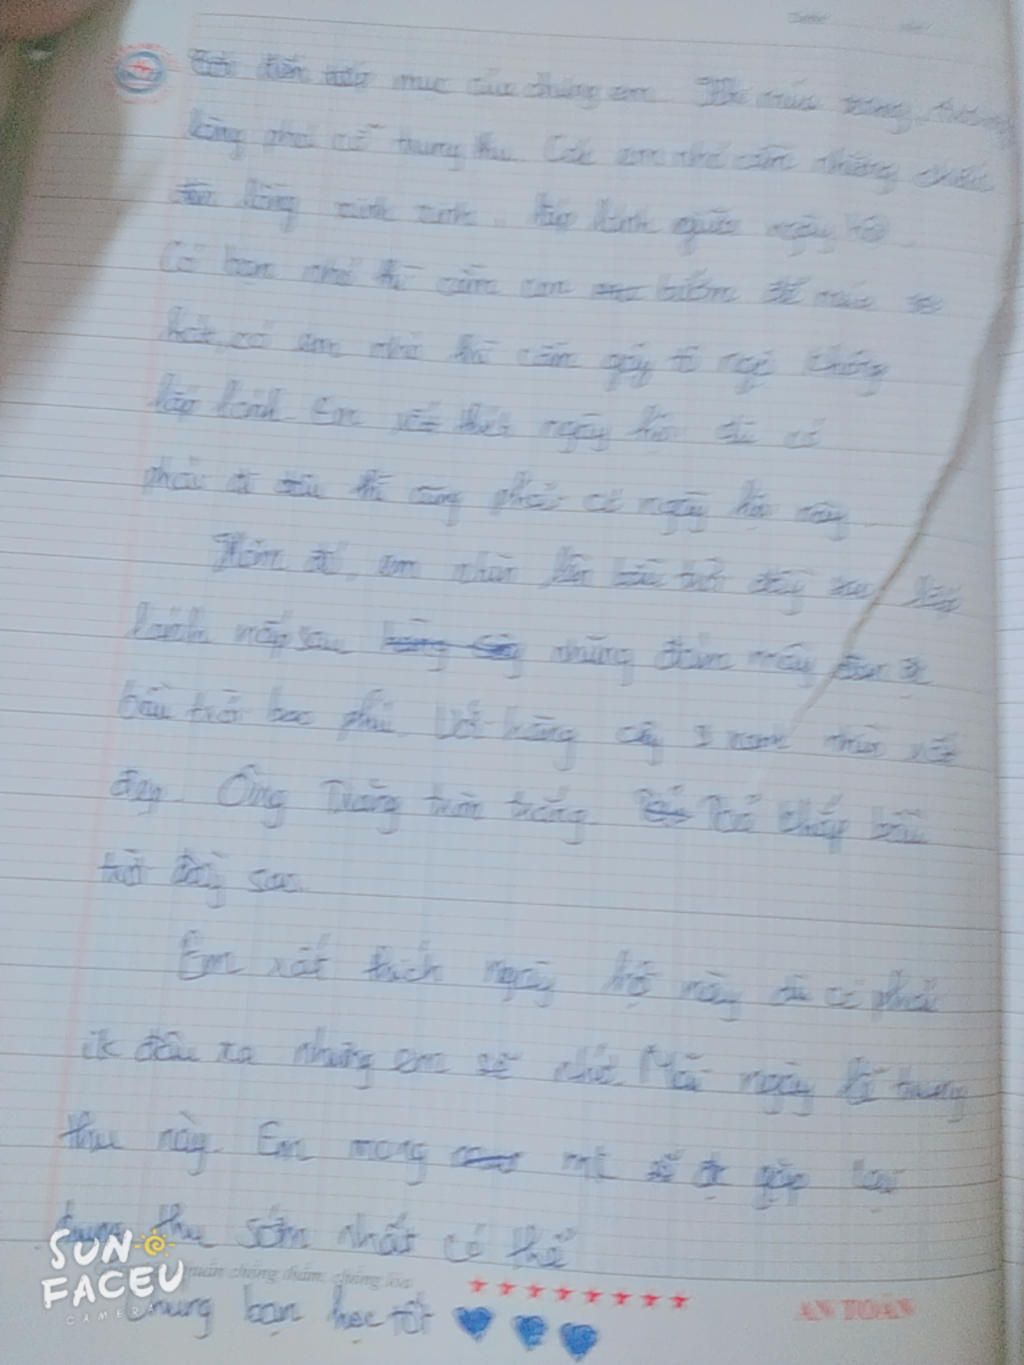 mục của chúng em. múa trăng,
lồng phá cỗ trung thu. Các em nhỏ cầm những chiếc
lồng xinh xinh. lấp lánh người ngày hội.
Có bạn nhỏ thì cầm con bướm để múa
hát, có em nhỏ thì cầm gậy tề ngộ không
lấp lánh. Em rất thích ngày hội dù có
phải đi đâu thì cũng phải có ngày hội này.
Hôm đó, em nhìn lên bầu trời đầy sao lấp
lánh nấp sau những đám mây
bầu trời bao phủ. Với hàng cây nhìn rất
đẹp. Ông Trăng tròn trăng. Toả khắp bầu
trời đầy sao.
Em rất thích ngày hội này dù có phải
đi đâu xa nhưng em sẽ nhớ Mãi ngày lễ trung
thu này. Em mong gặp lại
trung thu sớm nhất có thể
SUN FACEU
CAMERA
chống thấm, chống lóa
chung bạn học tốt
AN TOÀN